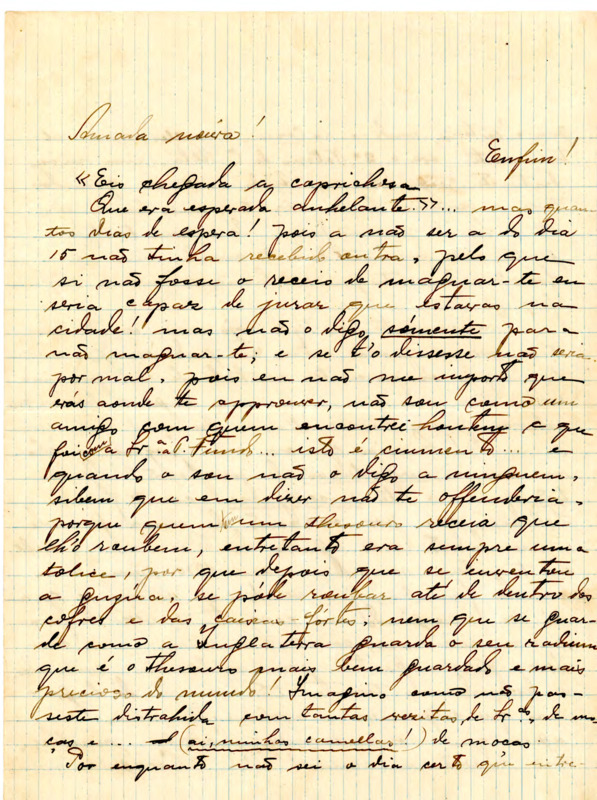 Amada noiva!
Enfim!
«Eis chegada a caprichosa
Que era esperada anhelante.»... mas quan-
tos dias de espera! pois a não ser a do dia
15 não tinha recebido outra, pelo que
si não fosse o receio de maguar-te eu
seria capaz de jurar que estavas na
cidade! mas não o digo, sómente para
não maguar-te; e se t'o dissesse não seria
por mal, pois eu não me importo que
vás aonde te approuver, não sou como um
amigo com quem encontrei hontem e que
foi com a Sr.ª a P. Fundo... isto é ciumento... e
quando o sou não o digo a ninguem,
sibem que em dizer não te offenderia,
porque quem tem um thesouro receia que
lh'o roubem, entretanto era sempre uma
tolice, por que depois que se inventou
a guzúa, se póde roubar até de dentro dos
cofres e das caixas-fórtes, nem que se guar-
de como a Inglaterra guarda o seu radium
que é o thesouro mais bem guardado e mais
precioso do mundo! Imagino como não pas-
seste distrahida com tantas visitas, de Sr.as, de mo-
ças e ... (ai, minhas canellas!) de moços.
Por enquanto não sei o dia certo que entre-